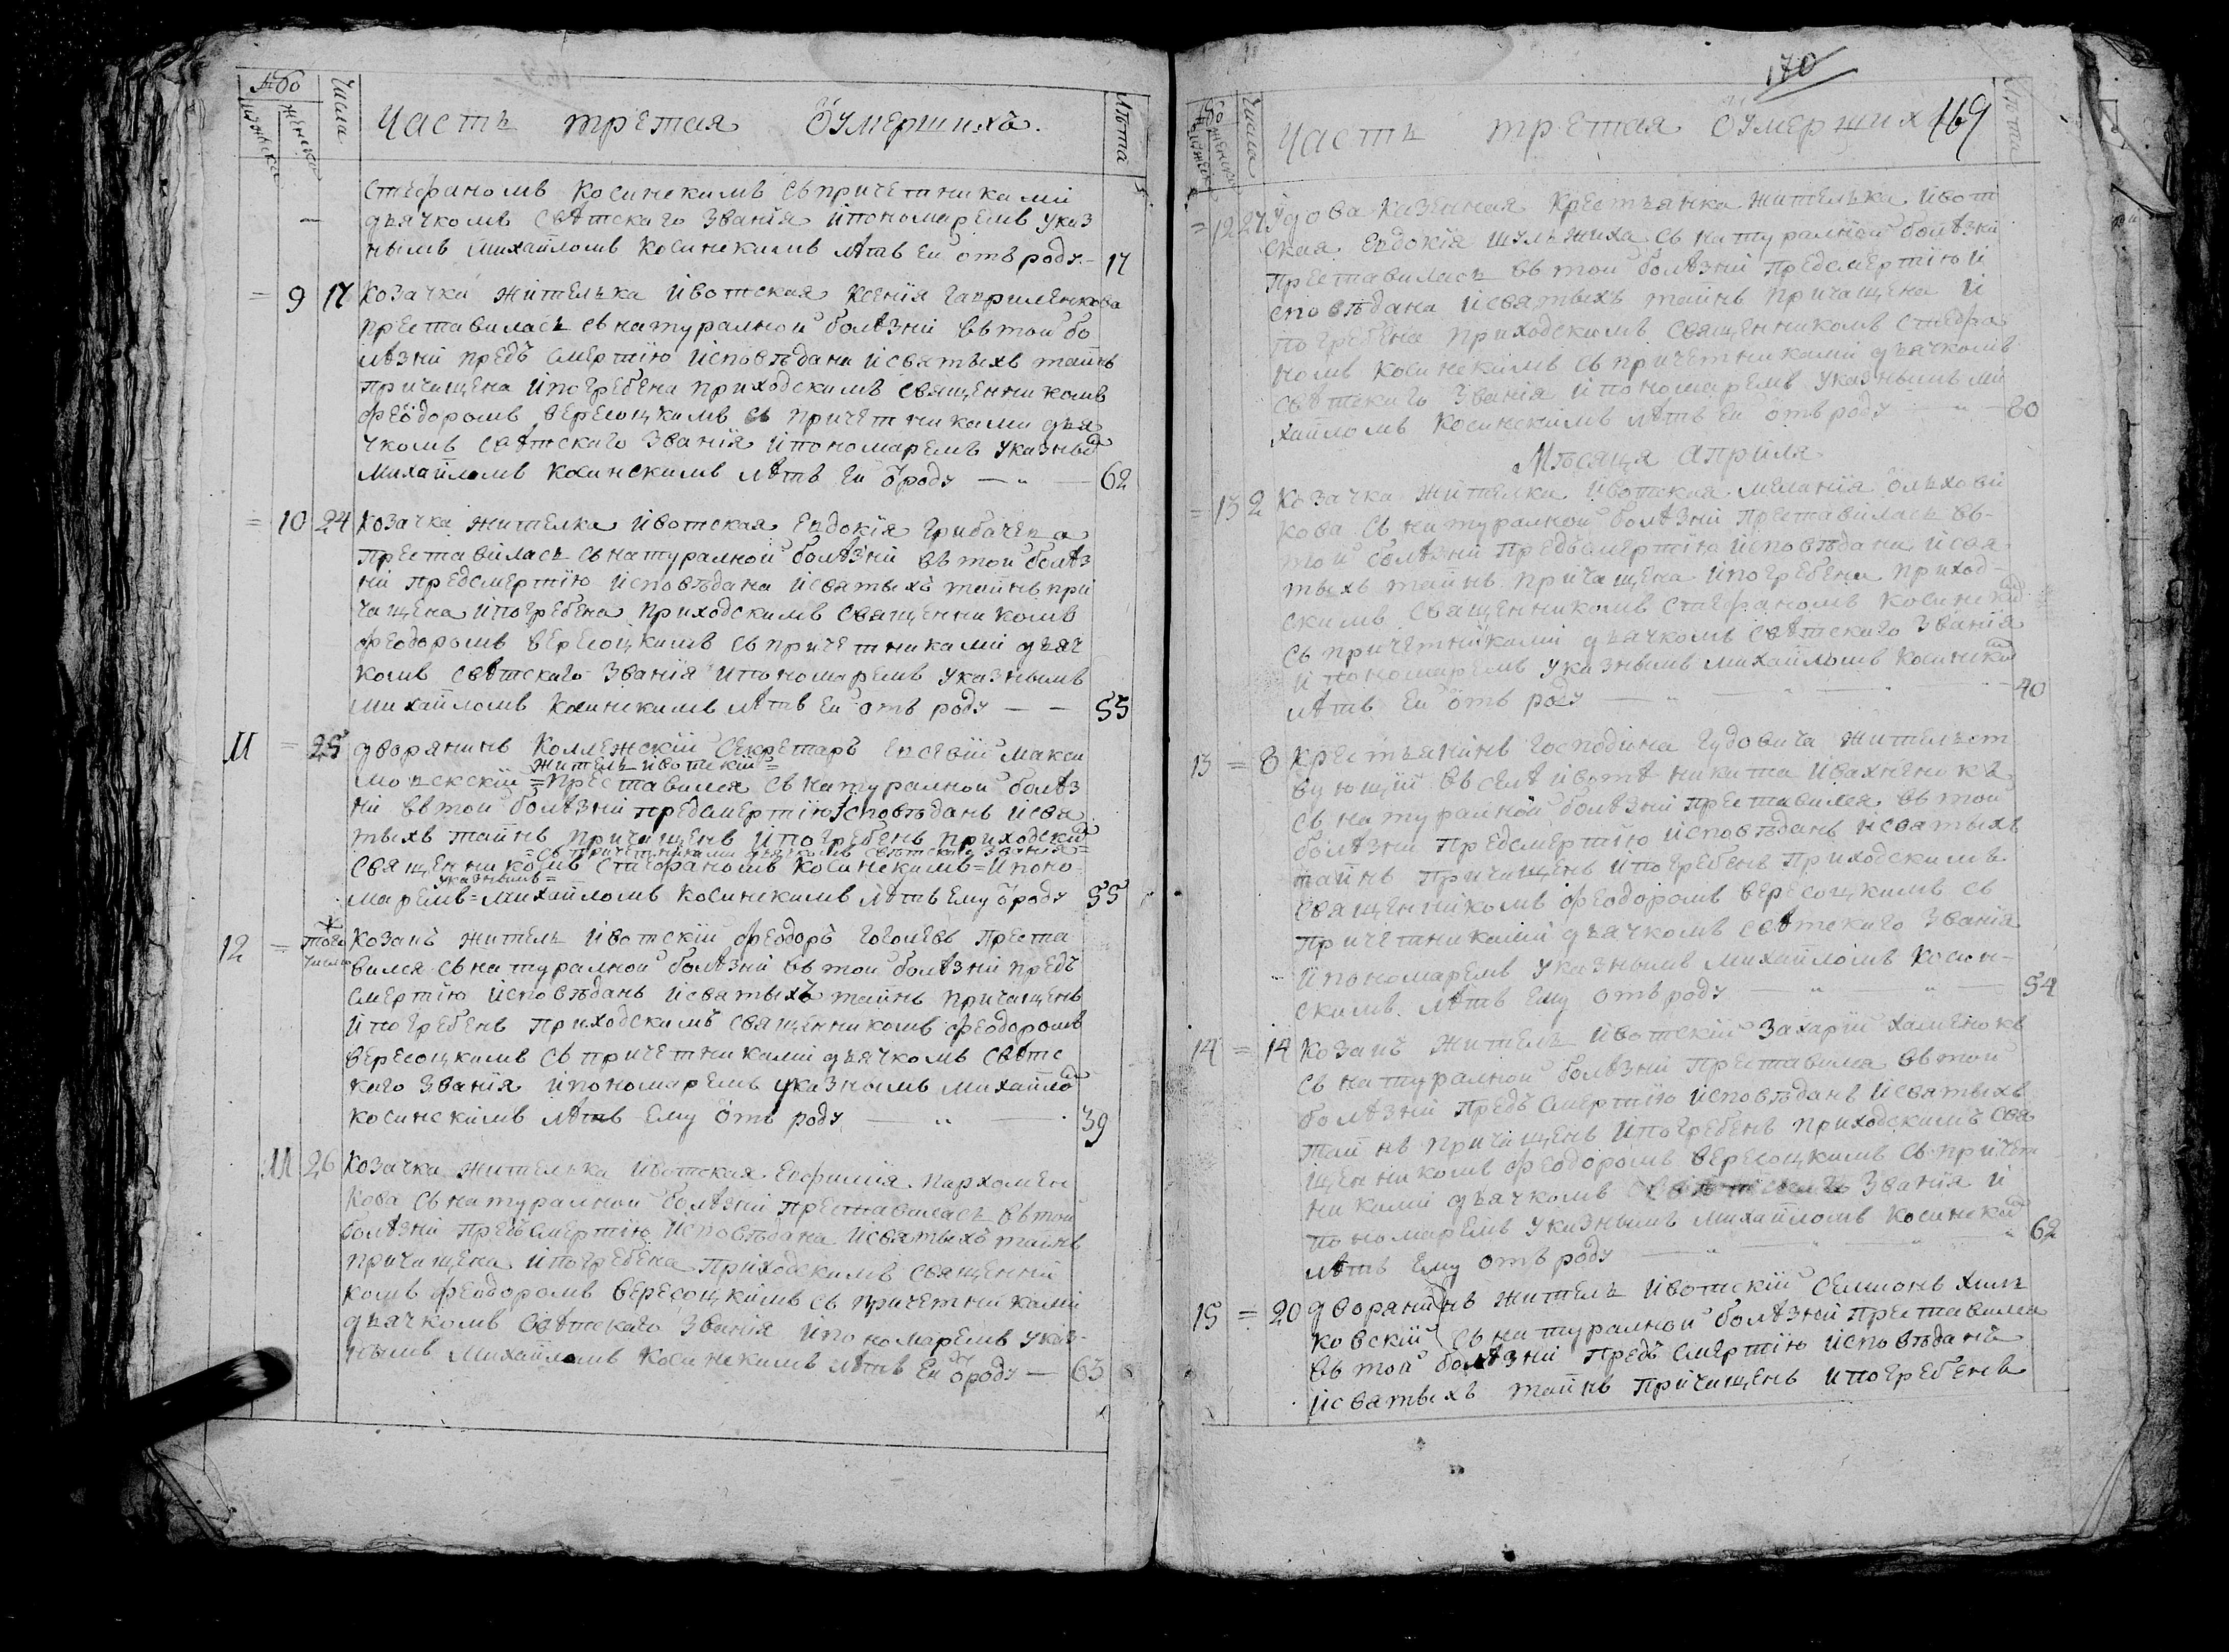 №бо
Мужеска
Женска
Числа
Часть третая Оумершихъ.
Лѣта
Стефаномъ Косинскимъ съ причетниками
дьячкомъ свѣтскаго званія и пономаремъ указ
нымъ Михайломъ Косинскимъ лѣтъ ей отъ роду 17
9 17 Козачка жителька Ивотская Ксенія Гавриленкова
преставилась съ натуралной болѣзни въ той бо
лѣзни предъ смертію исповѣдана и святыхъ таинъ
причащена и погребена приходскимъ священникомъ
Феодоромъ Вересоцкимъ съ причетниками дья
чкомъ свѣтскаго званія и пономаремъ указны
Михайломъ Косинскимъ лѣтъ ей о роду 62
10 24 Козачка жителка Ивотская Евдокія Грибачева
преставилась съ натуралной болѣзни въ той болѣз
ни предсмертію исповѣдана и святыхъ таинъ при
чащена и погребена приходскимъ священникомъ
Феодоромъ Вересоцкимъ съ причетниками дьяч
комъ свѣтскаго званія и пономаремъ указнымъ
Михайломъ Косинскимъ лѣтъ ей отъ роду 55
11 25 дворянинъ Коллежскій Секретарь Евсевій Макси
житель ивотскій
мовскій преставился съ натуралной болѣз
ни въ той болѣзни предсмертію исповѣданъ и свя
тыхъ таинъ причащенъ и погребенъ приходски
съ причетниками дьячкомъ свѣтскаго званія
священникомъ Стефаномъ Косинскимъ и поно
указнымъ
маремъ Михайломъ Косинскимъ лѣтъ ему о роду 55
12 того числа Козакъ житель Ивотскій Феодоръ Гоголевъ преста
вился съ натуралной болѣзни въ той болѣзни предъ
смертію исповѣданъ и святыхъ таинъ причащенъ
и погребенъ приходскимъ священникомъ Феодоромъ
Вересоцкимъ съ причетниками дьячкомъ свѣтс
каго званія и пономаремъ указнымъ Михайло
Косинскимъ лѣтъ ему отъ роду 39
11 26 Козачка жителька Ивотская Евфимія Пархомен
кова съ натуралной болѣзни преставилась въ той
болѣзни предъ смертію исповѣдана и святыхъ таинъ
причащена и погребена приходскимъ священни
комъ Феодоромъ Вересоцкимъ съ причетниками
дьячкомъ свѣтскаго званія и пономаремъ указ
нымъ Михайломъ Косинскимъ лѣтъ ей о роду 63
170
№бо
Мужеска
Женска
Числа
Часть третая Оумершихъ
169
Лѣта
12 27 Удова казенная крестьянка жителька Ивот
ская Евдокія Шульжиха съ натуралной болѣзни
преставилась въ той болѣзни предсмертію и
сповѣдана и святыхъ таинъ причащена и
погребена приходскимъ священникомъ Стефа
номъ Косинскимъ съ причетниками дьячкомъ
свѣтскаго званія и пономаремъ указнымъ ми
хайломъ Косинскимъ лѣтъ ей отъ роду 80
Мѣсяца Априля
13 2 Козачка жителка Ивотская Меланія
кова съ натуралной болѣзни преставилась въ
той болѣзни предъ смертію исповѣдана и свя
тыхъ таинъ причащена и погребена приход
скимъ священникомъ Стефаномъ Косински
съ причетниками дьячкомъ свѣтскаго званія
и пономаремъ указнымъ Михайломъ Косински
лѣтъ ей отъ роду 40
13 8 Крестьянинъ господина Гудовича жительст
вующій въ селѣ Ивотѣ Никита Ивахненокъ
съ натуралной болѣзни преставился въ той
болѣзни предсмертію исповѣданъ и святыхъ
таинъ причащенъ и погребенъ приходскимъ
священникомъ Феодоромъ Вересоцкимъ съ
причетниками дьячкомъ свѣтскаго званія
и пономаремъ указнымъ Михайломъ Косин
скимъ лѣтъ ему отъ роду 54
14 14 Козакъ житель Ивотскій Захарій Хаменокъ
съ натуралной болѣзни преставился въ той
болѣзни предъ смертію исповѣданъ и святыхъ
таинъ причащенъ и погребенъ приходскимъ свя
щенникомъ Феодоромъ Вересоцкимъ съ причет
никами дьячкомъ свѣтскаго званія и
пономаремъ указнымъ Михайломъ Косински
лѣтъ ему отъ роду 62
15 20 дворянинъ житель Ивотскій Семионъ Хиль
ковскій съ натуралной болѣзни преставился
въ той болѣзни предъ смертію исповѣданъ
и святыхъ таинъ причащенъ и погребенъ